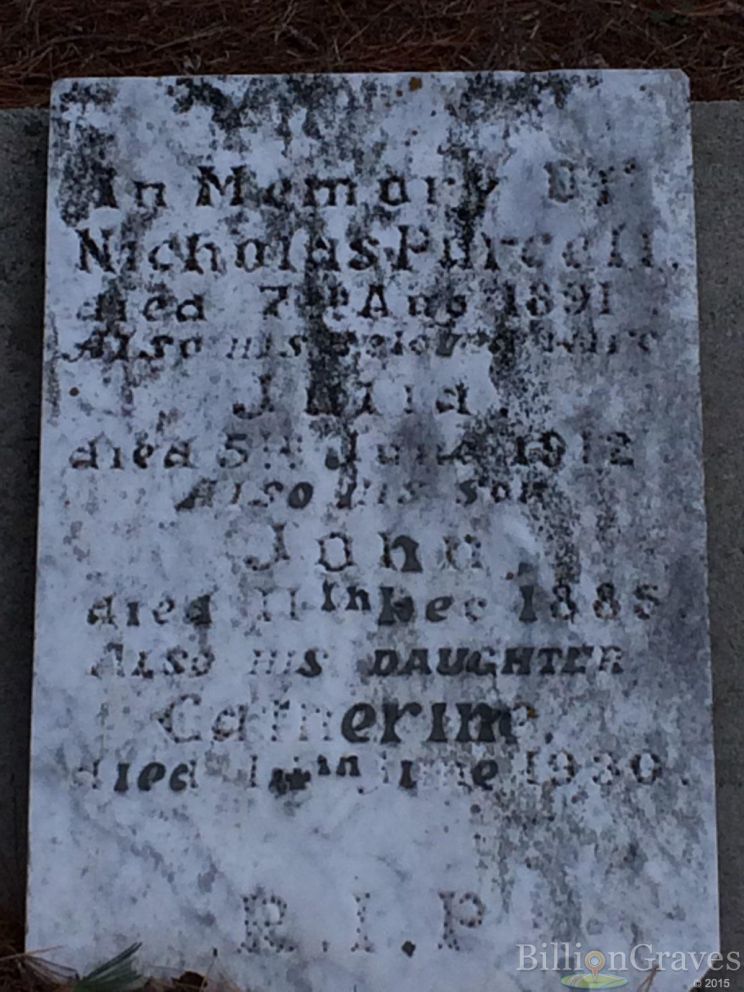 In Memory Of
Nicholas Purcell.
died 7th Aug 1891.
ALSO HIS BELOVED WIFE
Julia.
died 5th June 1912
ALSO HIS SON
John.
died 11th Dec 1885.
ALSO HIS DAUGHTER
Catherine.
died June 1930.
R.I.P
BillionGraves
© 2015